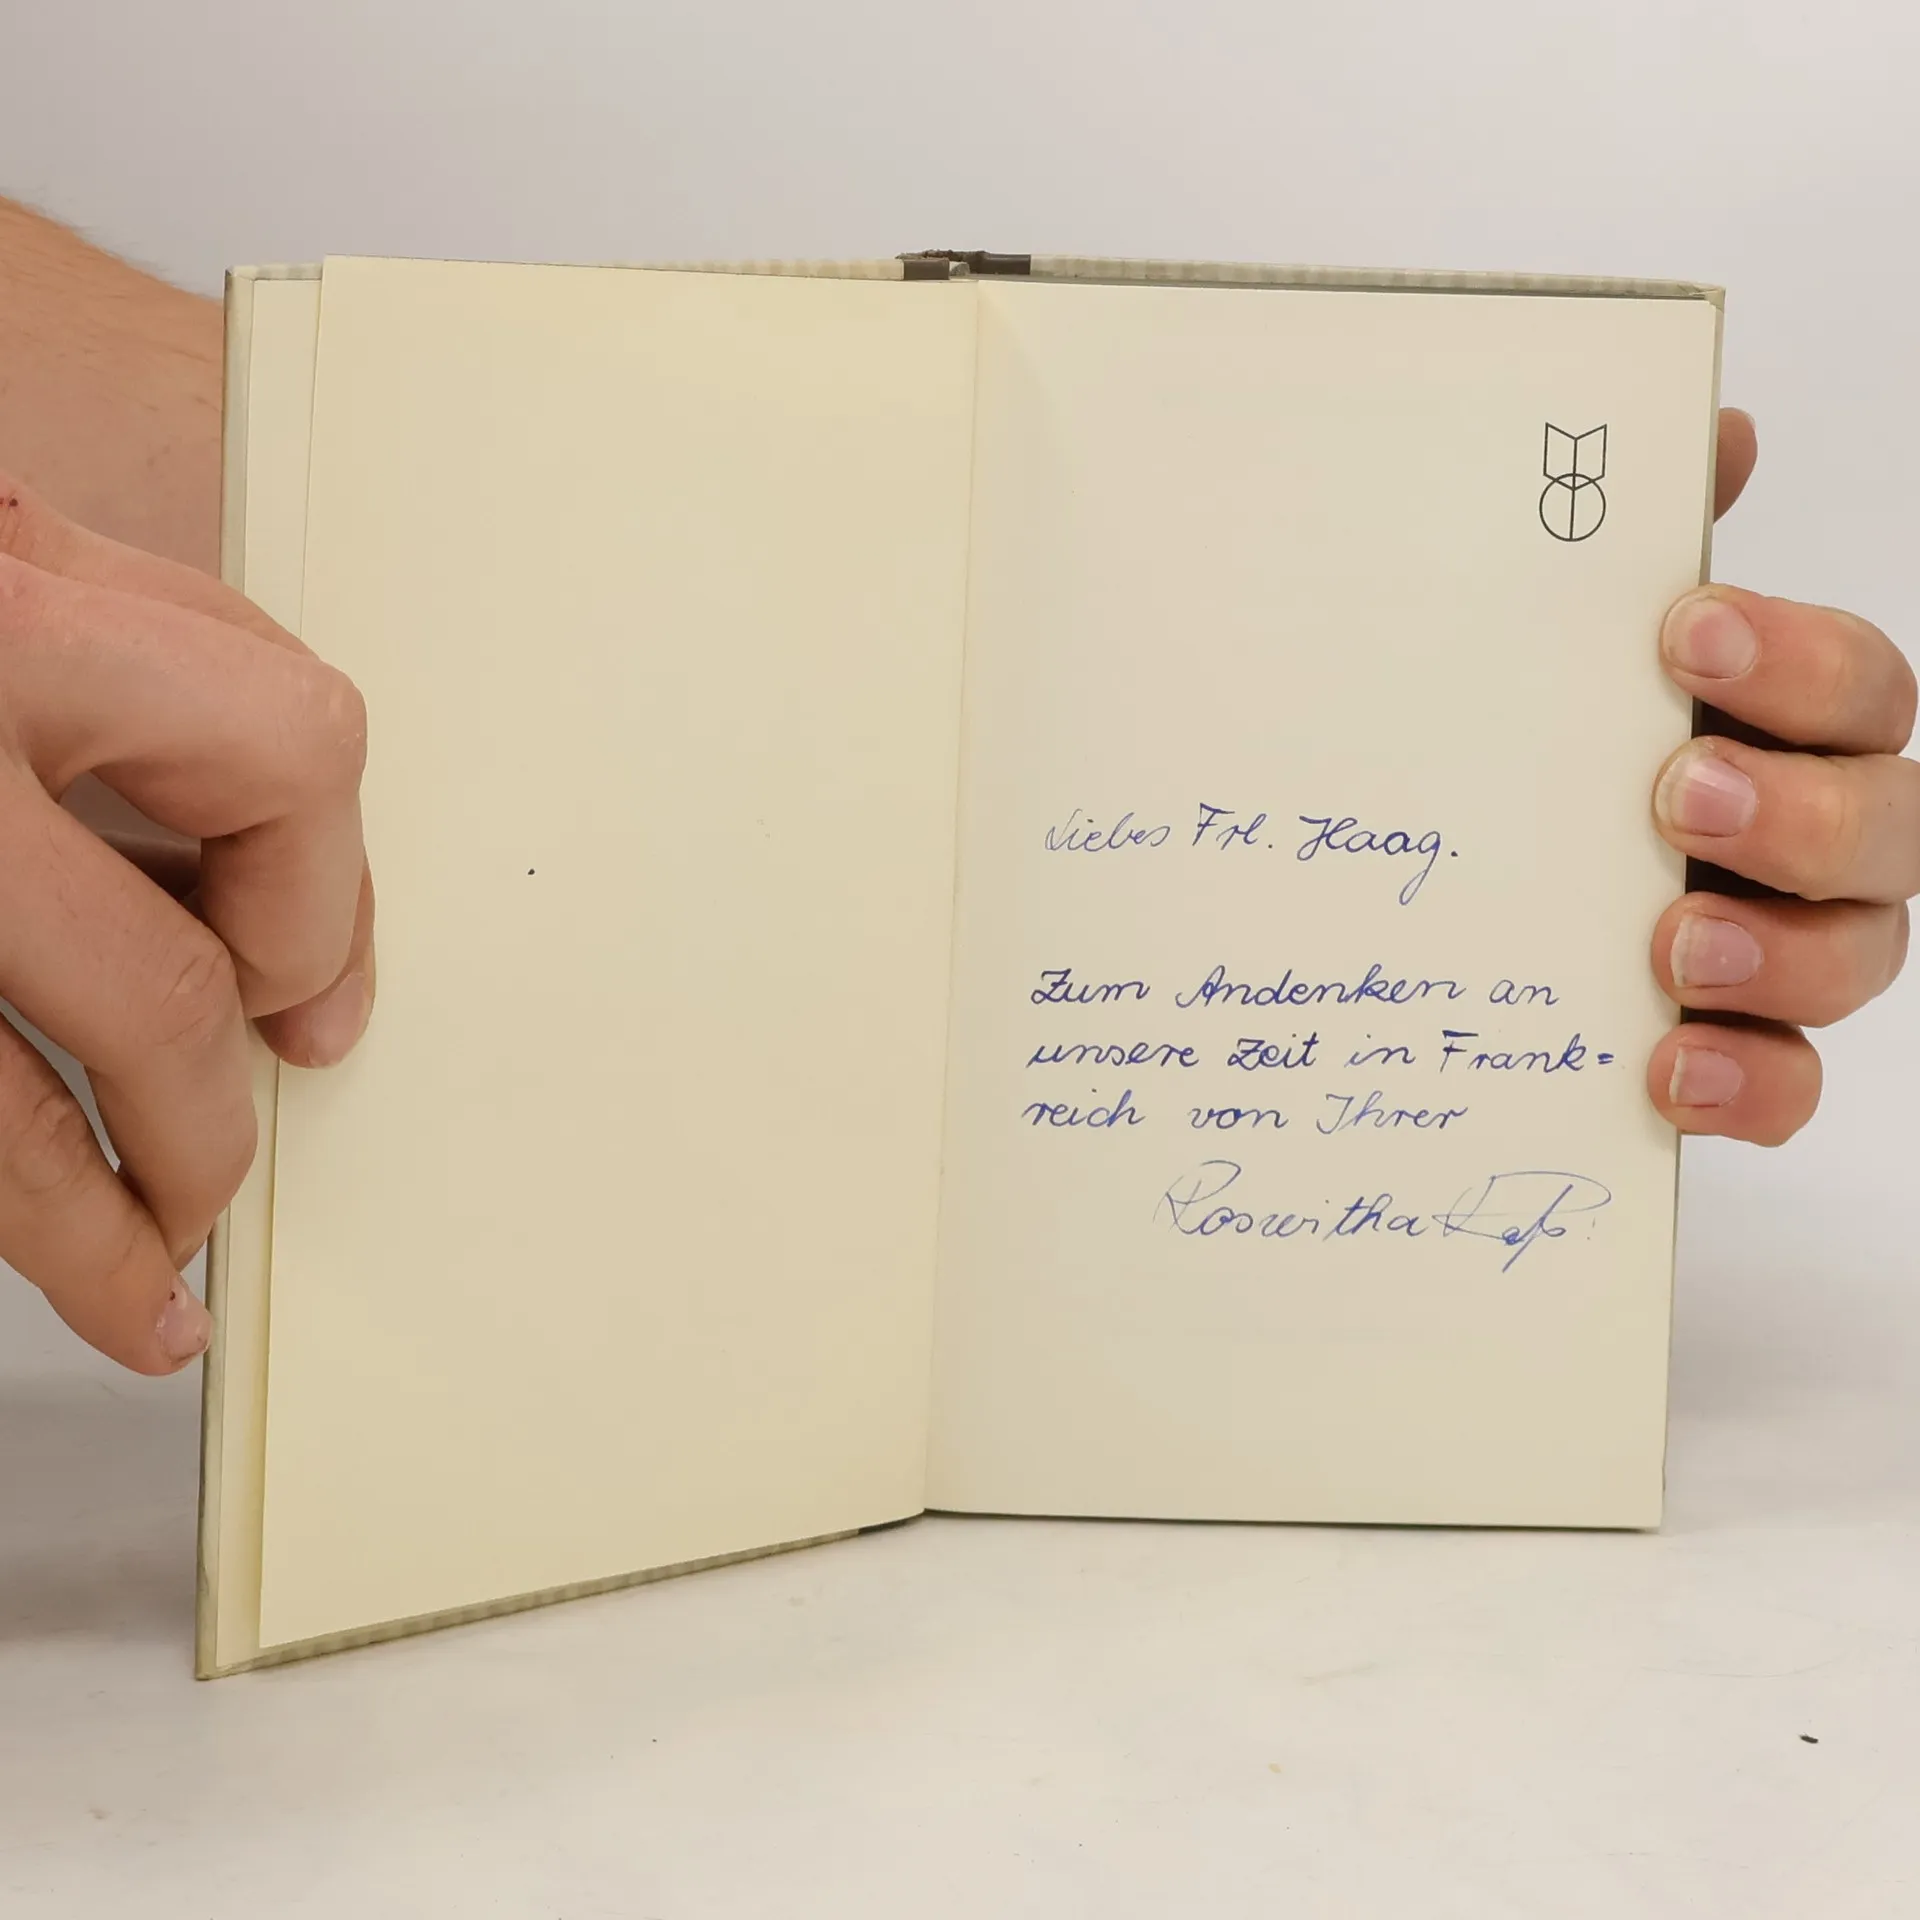 Liebes Frl. Haag.
Zum Andenken an
unsere Zeit in Frank=
reich von Ihrer
Roswitha